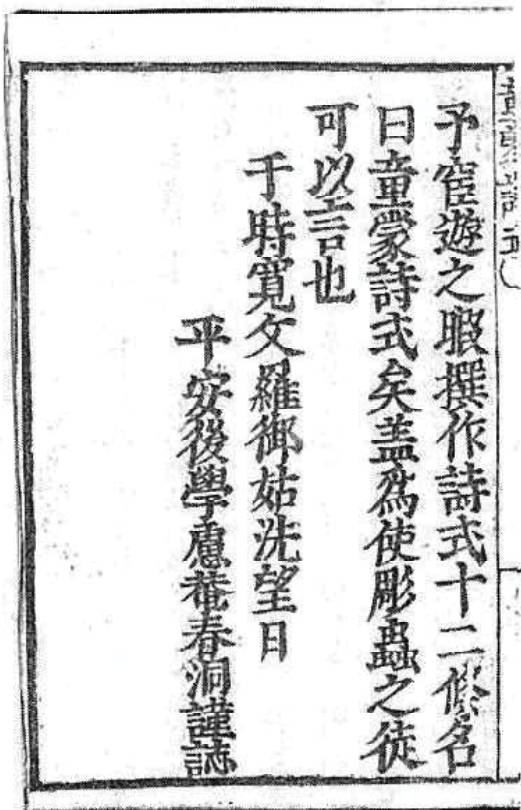 予宦遊之暇撰作詩式十二條名
曰童蒙詩式矣盖爲使彫蟲之徒
可以言也
于時寛文羅御姑洗望日
平安後學慮菴春洞謹誌